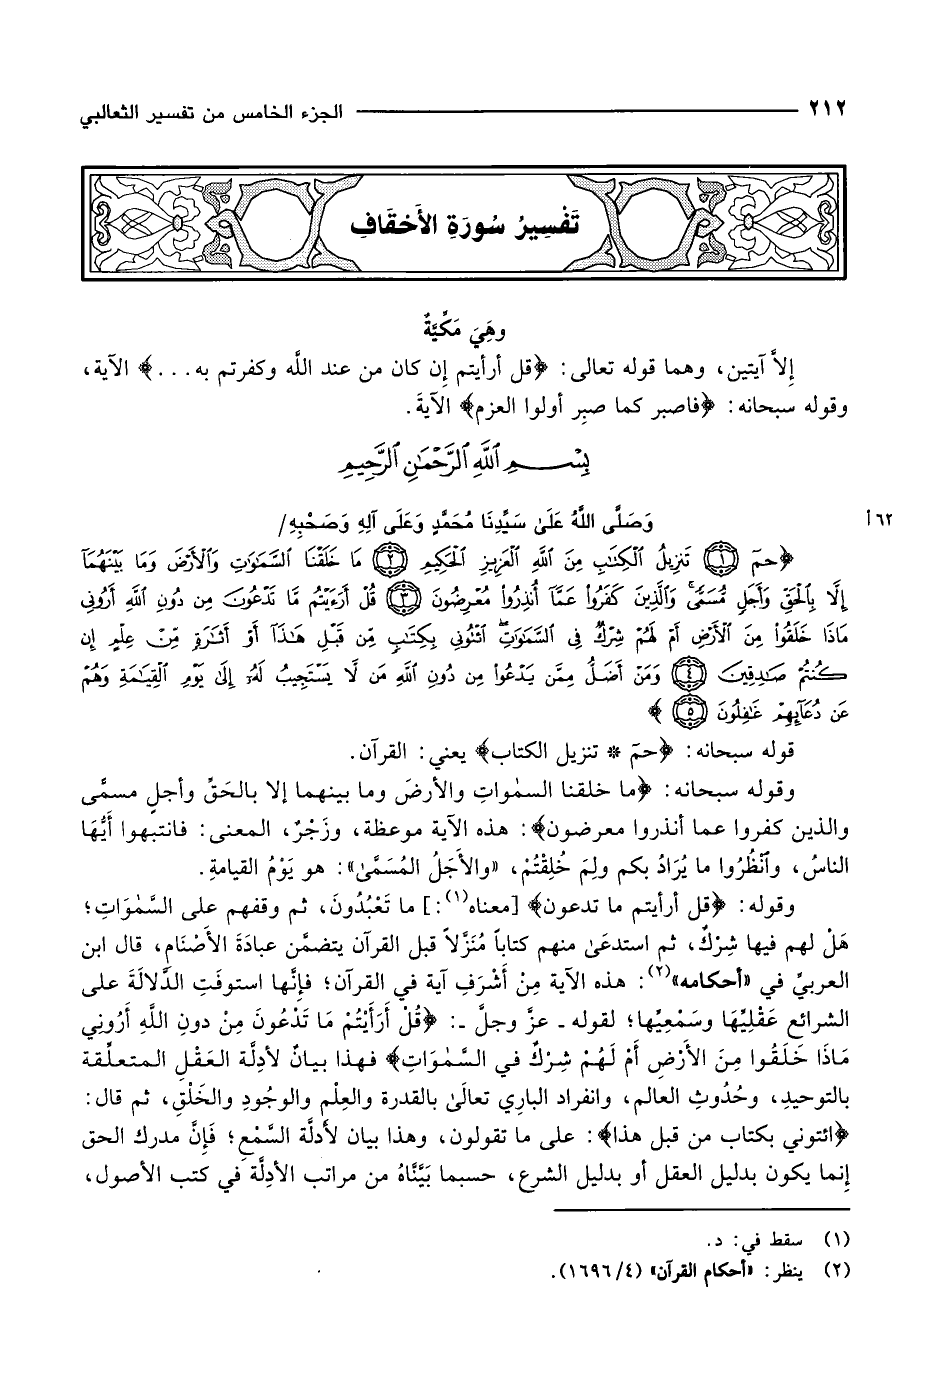 ٢١٢ الجزء الخامس من تفسير الثعالبي
تَفْسِيرُ سُورَةِ الأَحْقَافِ
وهَيَ مَكِّيَّةٌ
إلاَّ آيتين، وهما قوله تعالى: ﴿قل أرأيتم إن كان من عند اللَّه وكفرتم به...﴾ الآية،
وقوله سبحانه: ﴿فاصبر كما صبر أولوا العزم﴾ الآيةَ.
بِسْمِ ٱللَّهِ ٱلرَّحْمَٰنِ ٱلرَّحِيمِ
وَصَلَّى اللَّهُ عَلَىٰ سَيِّدِنَا مُحَمَّدٍ وَعَلَى آلِهِ وَصَحْبِهِ/ ٦٢ أ
﴿حمٓ ١ تَنزِيلُ ٱلْكِتَٰبِ مِنَ ٱللَّهِ ٱلْعَزِيزِ ٱلْحَكِيمِ ٢ مَا خَلَقْنَا ٱلسَّمَٰوَٰتِ وَٱلْأَرْضَ وَمَا بَيْنَهُمَآ
إِلَّا بِٱلْحَقِّ وَأَجَلٍ مُّسَمًّىۚ وَٱلَّذِينَ كَفَرُوا۟ عَمَّآ أُنذِرُوا۟ مُعْرِضُونَ ٣ قُلْ أَرَءَيْتُم مَّا تَدْعُونَ مِن دُونِ ٱللَّهِ أَرُونِى
مَاذَا خَلَقُوا۟ مِنَ ٱلْأَرْضِ أَمْ لَهُمْ شِرْكٌ فِى ٱلسَّمَٰوَٰتِۖ ٱئْتُونِى بِكِتَٰبٍ مِّن قَبْلِ هَٰذَآ أَوْ أَثَٰرَةٍ مِّنْ عِلْمٍ إِن
كُنتُمْ صَٰدِقِينَ ٤ وَمَنْ أَضَلُّ مِمَّن يَدْعُوا۟ مِن دُونِ ٱللَّهِ مَن لَّا يَسْتَجِيبُ لَهُۥٓ إِلَىٰ يَوْمِ ٱلْقِيَٰمَةِ وَهُمْ
عَن دُعَآئِهِمْ غَٰفِلُونَ ٥﴾
قوله سبحانه: ﴿حمٓ * تنزيل الكتاب﴾ يعني: القرآن.
وقوله سبحانه: ﴿ما خلقنا السمٰواتِ والأرضَ وما بينهما إلا بالحَقِّ وأجلٍ مسمًّى
والذين كفروا عما أنذروا معرضون﴾: هذه الآية موعظة، وزَجْرٌ، المعنى: فانتبهوا أَيُّهَا
الناسُ، وٱنْظُرُوا ما يُرَادُ بكم ولِمَ خُلِقْتُم، «والأَجَلُ المُسَمَّىٰ»: هو يَوْمُ القيامةِ.
وقوله: ﴿قل أرأيتم ما تدعون﴾ [معناه(١):] ما تَعْبُدُونَ، ثم وقفهم على السَّمٰوَاتِ؛
هَلْ لهم فيها شِرْكٌ، ثم استدعَىٰ منهم كتاباً مُنَزَّلاً قبل القرآن يتضمَّن عبادَةَ الأَصْنَامِ، قال ابن
العربيِّ في «أحكامه»(٢): هذه الآية مِنْ أَشْرَفِ آية في القرآن؛ فإنَّها استوفَتِ الدَّلالَةَ على
الشرائع عَقْلِيِّهَا وسَمْعِيِّها؛ لقوله ـ عزَّ وجلَّ ـ: ﴿قُلْ أَرَأَيْتُمْ مَا تَدْعُونَ مِنْ دونِ اللَّهِ أَرُونِي
مَاذَا خَلَقُوا مِنَ الأَرْضِ أَمْ لَهُمْ شِرْكٌ في السَّمٰوَاتِ﴾ فهذا بيانٌ لأَدِلَّةِ العَقْلِ المتعلِّقة
بالتوحيدِ، وحُدُوثِ العالم، وانفراد البارِي تعالَىٰ بالقدرة والعِلْم والوجُودِ والخَلْقِ، ثم قال:
﴿ائتوني بكتاب من قبل هذا﴾: على ما تقولون، وهذا بيان لأَدلَّة السَّمْعِ؛ فَإِنَّ مدرك الحق
إنما يكون بدليل العقل أو بدليل الشرع، حسبما بَيَّنَّاهُ من مراتب الأدِلَّة في كتب الأصول،
(١) سقط في: د.
(٢) ينظر: «أحكام القرآن» (٤/ ١٦٩٦).